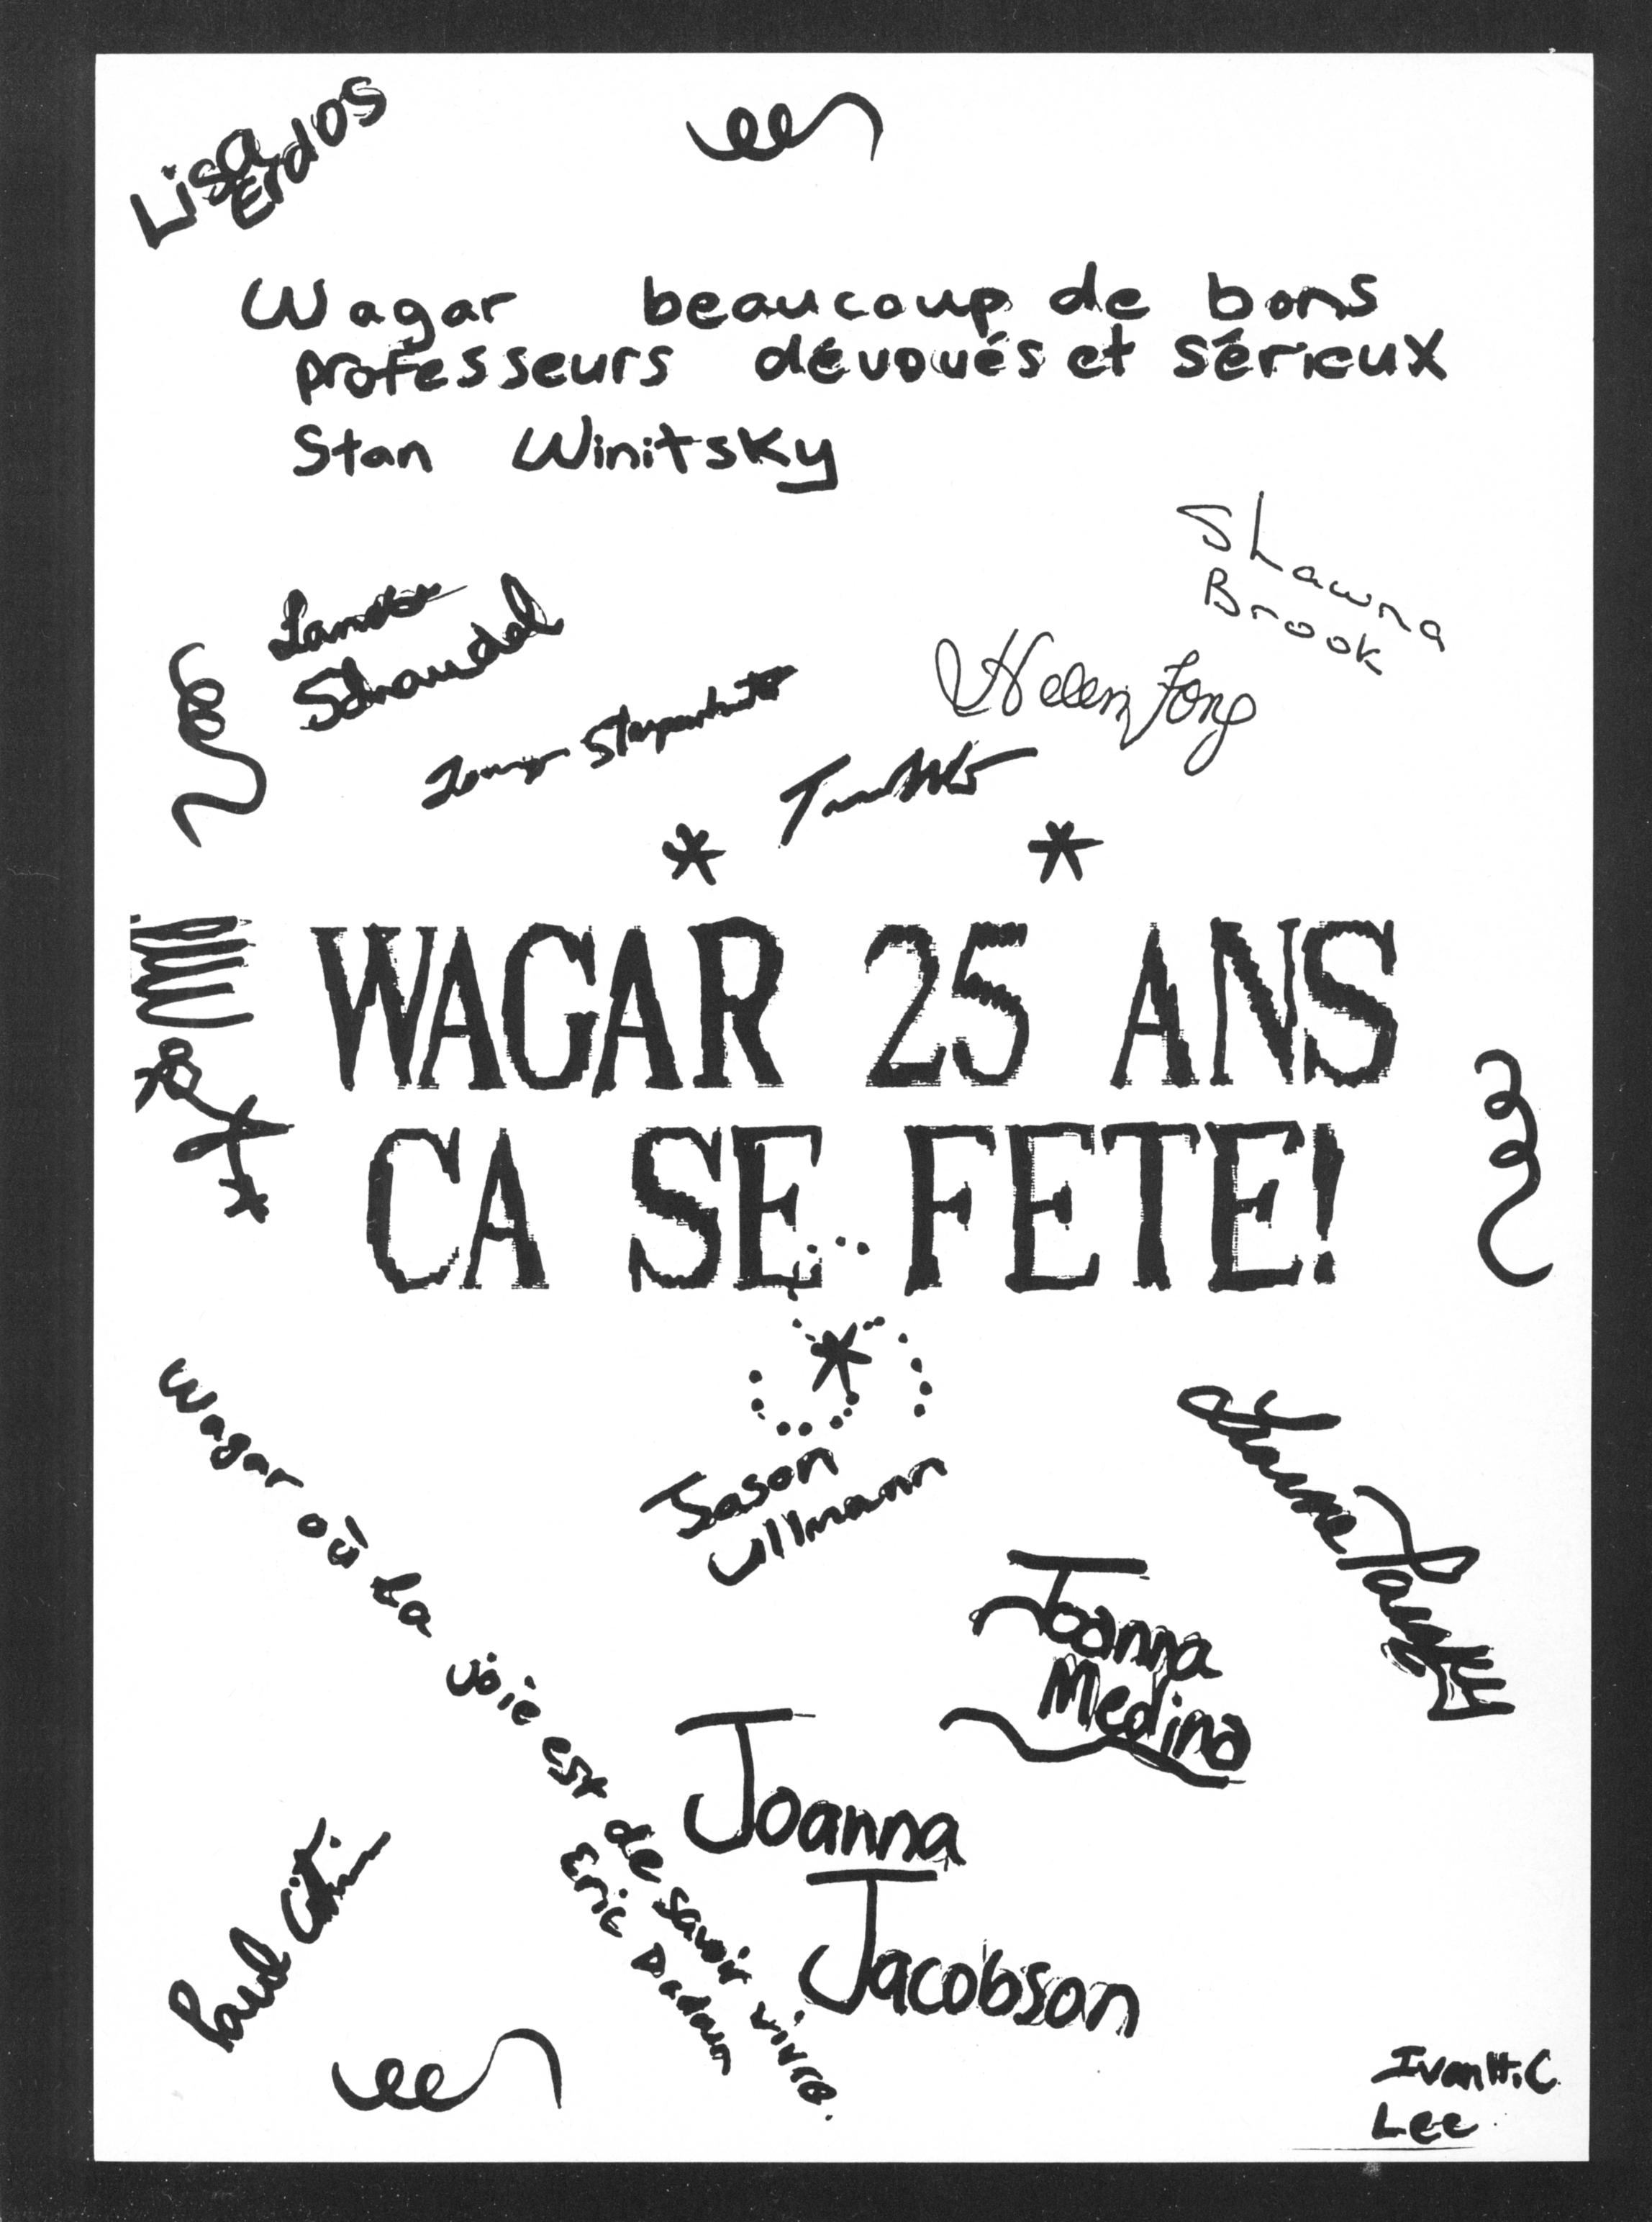 Lisa
Erdos
Wagar beaucoup de bons
professeurs dévoués et sérieux
Stan Winitsky
Shawna
Brook
Helen Fong
WAGAR 25 ANS
CA SE FETE!
Jason
Ullmann
Wagar où la voie est de savoir vivre.
Eric Dadoun
Joanna
Medina
Joanna
Jacobson
Paul
Ivan H.C
Lee